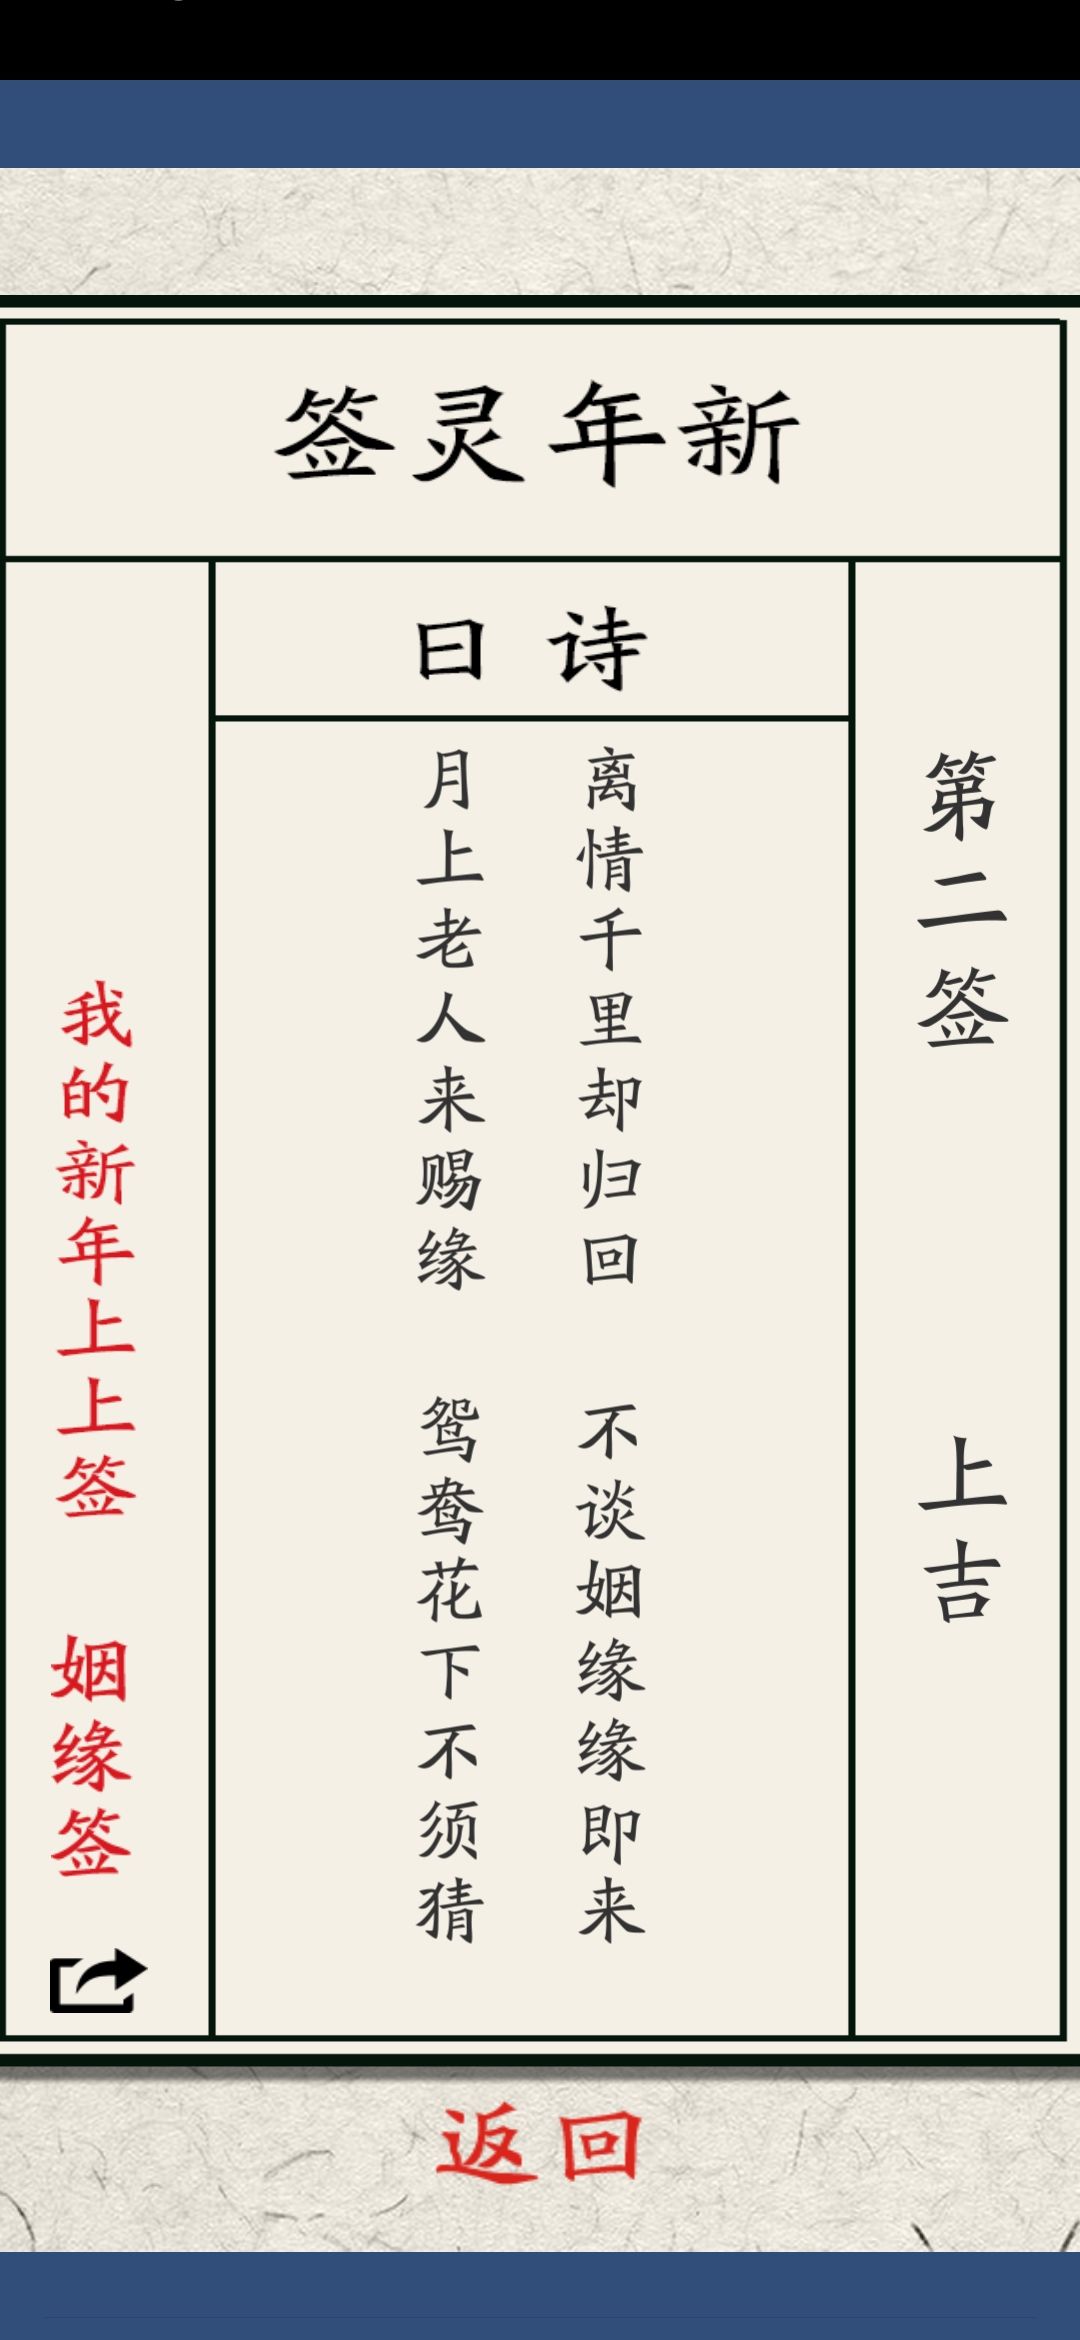 新年灵签
第二签
上吉
诗曰
离情千里却归回
不谈姻缘缘即来
月上老人来赐缘
鸳鸯花下不须猜
我的新年上上签
姻缘签
返回